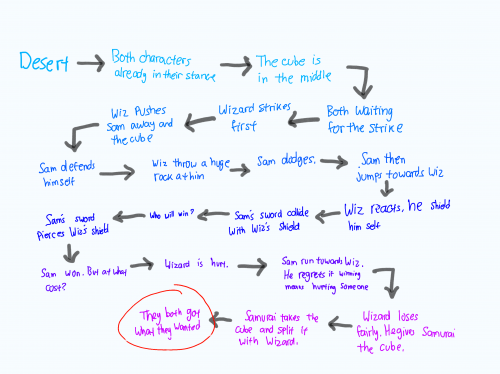 Desert
Both characters
already in their stance
The cube is
in the middle
Both Waiting
for the strike
Wizard strikes
first
Wiz Pushes
Sam away and
the cube
Sam defends
himself
Wiz throw a huge
rock at him
Sam dodges.
Sam then
Jumps towards Wiz
Wiz reacts, he shield
him self
Sam's sword collide
with Wiz's shield
Who will win?
Sam's sword
Pierces Wiz's shield
Sam won. But at what
cost?
Wizard is hurt.
Sam run towards Wiz.
He regrets it winning
means hurting someone
Wizard loses
fairly. He gives Samurai
the cube.
Samurai takes the
cube and split it
with Wizard.
They both got
What they wanted